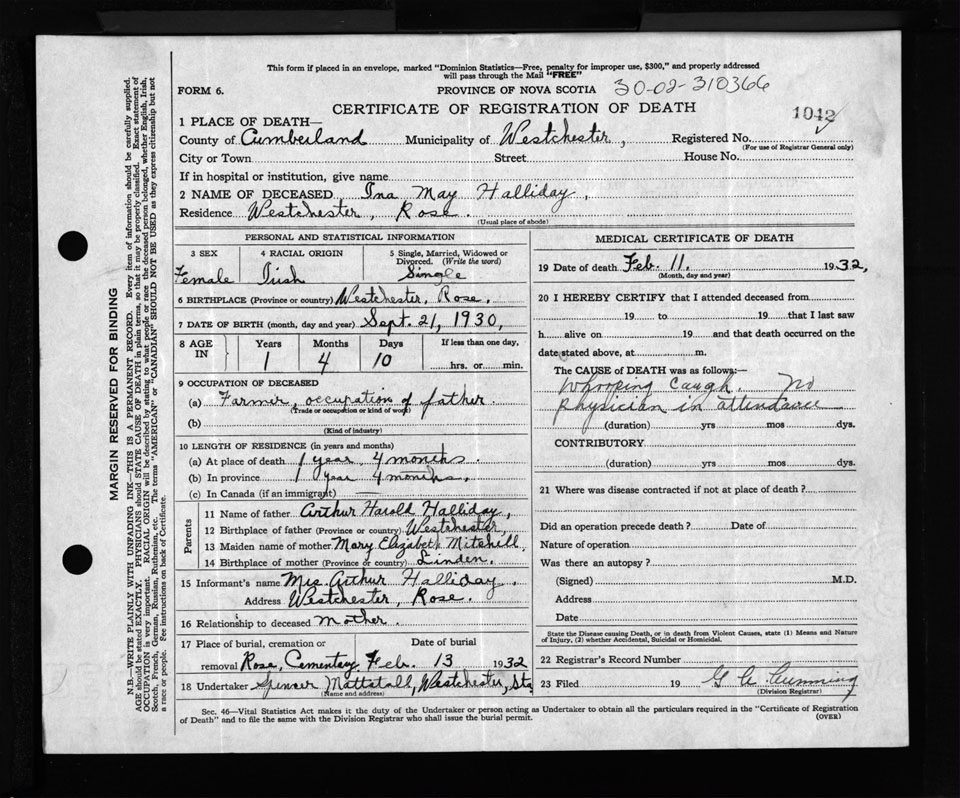 This form if placed in an envelope, marked "Dominion Statistics—Free, penalty for improper use, $300," and properly addressed
will pass through the Mail "FREE"
FORM 6.
PROVINCE OF NOVA SCOTIA 30-02-310366
CERTIFICATE OF REGISTRATION OF DEATH
1042
1 PLACE OF DEATH—
County of Cumberland Municipality of Westchester, Registered No.
(For use of Registrar General only)
City or Town Street House No.
If in hospital or institution, give name
2 NAME OF DECEASED Ina May Halliday,
Residence Westchester, Rose.
(Usual place of abode)
PERSONAL AND STATISTICAL INFORMATION
3 SEX 4 RACIAL ORIGIN 5 Single, Married, Widowed or
Divorced. (Write the word)
Female Irish Single
6 BIRTHPLACE (Province or country) Westchester, Rose,
7 DATE OF BIRTH (month, day and year) Sept. 21, 1930,
8 AGE IN Years Months Days If less than one day,
1 4 10 hrs. or min.
9 OCCUPATION OF DECEASED
(a) Farmer, occupation of father.
(Trade or occupation or kind of work)
(b)
(Kind of industry)
10 LENGTH OF RESIDENCE (in years and months)
(a) At place of death 1 year, 4 months.
(b) In province 1 year 4 months.
(c) In Canada (if an immigrant) —
Parents
11 Name of father Arthur Harold Halliday,
12 Birthplace of father (Province or country) Westchester,
13 Maiden name of mother Mary Elizabeth Mitchell,
14 Birthplace of mother (Province or country) Linden.
15 Informant's name Mrs. Arthur Halliday.
Address Westchester, Rose.
16 Relationship to deceased Mother.
17 Place of burial, cremation or Date of burial
removal Rose, Cementary, Feb. 13 1932
18 Undertaker Spencer Mattatall, Westchester, Sta,
(Name and address)
MEDICAL CERTIFICATE OF DEATH
19 Date of death Feb. 11. 1932,
(Month, day and year)
20 I HEREBY CERTIFY that I attended deceased from
19 to 19 that I last saw
h alive on 19 and that death occurred on the
date stated above, at m.
The CAUSE of DEATH was as follows:—
Whooping Caugh. No
physician in attendance
(duration) yrs mos dys.
CONTRIBUTORY
(duration) yrs mos dys.
21 Where was disease contracted if not at place of death?
Did an operation precede death? Date of
Nature of operation
Was there an autopsy?
(Signed) M.D.
Address
Date
State the Disease causing Death, or in death from Violent Causes, state (1) Means and Nature
of Injury, (2) whether Accidental, Suicidal or Homicidal.
22 Registrar's Record Number
23 Filed 19 G A Cumming
(Division Registrar)
Sec. 46—Vital Statistics Act makes it the duty of the Undertaker or person acting as Undertaker to obtain all the particulars required in the "Certificate of Registration
of Death" and to file the same with the Division Registrar who shall issue the burial permit.
(OVER)
MARGIN RESERVED FOR BINDING
N.B.—WRITE PLAINLY WITH UNFADING INK—THIS IS A PERMANENT RECORD. Every item of information should be carefully supplied.
AGE should be stated EXACTLY. PHYSICIANS should STATE CAUSE OF DEATH in plain terms, so that it may be properly classified. Exact statement of
OCCUPATION is very important. RACIAL ORIGIN will be described by stating to what people or race the deceased person belonged, whether English, Irish,
Scotch, French, German, Russian, Ruthenian, etc. The terms "AMERICAN" or "CANADIAN" SHOULD NOT BE USED as they express citizenship but not
a race or people. See instructions on back of Certificate.